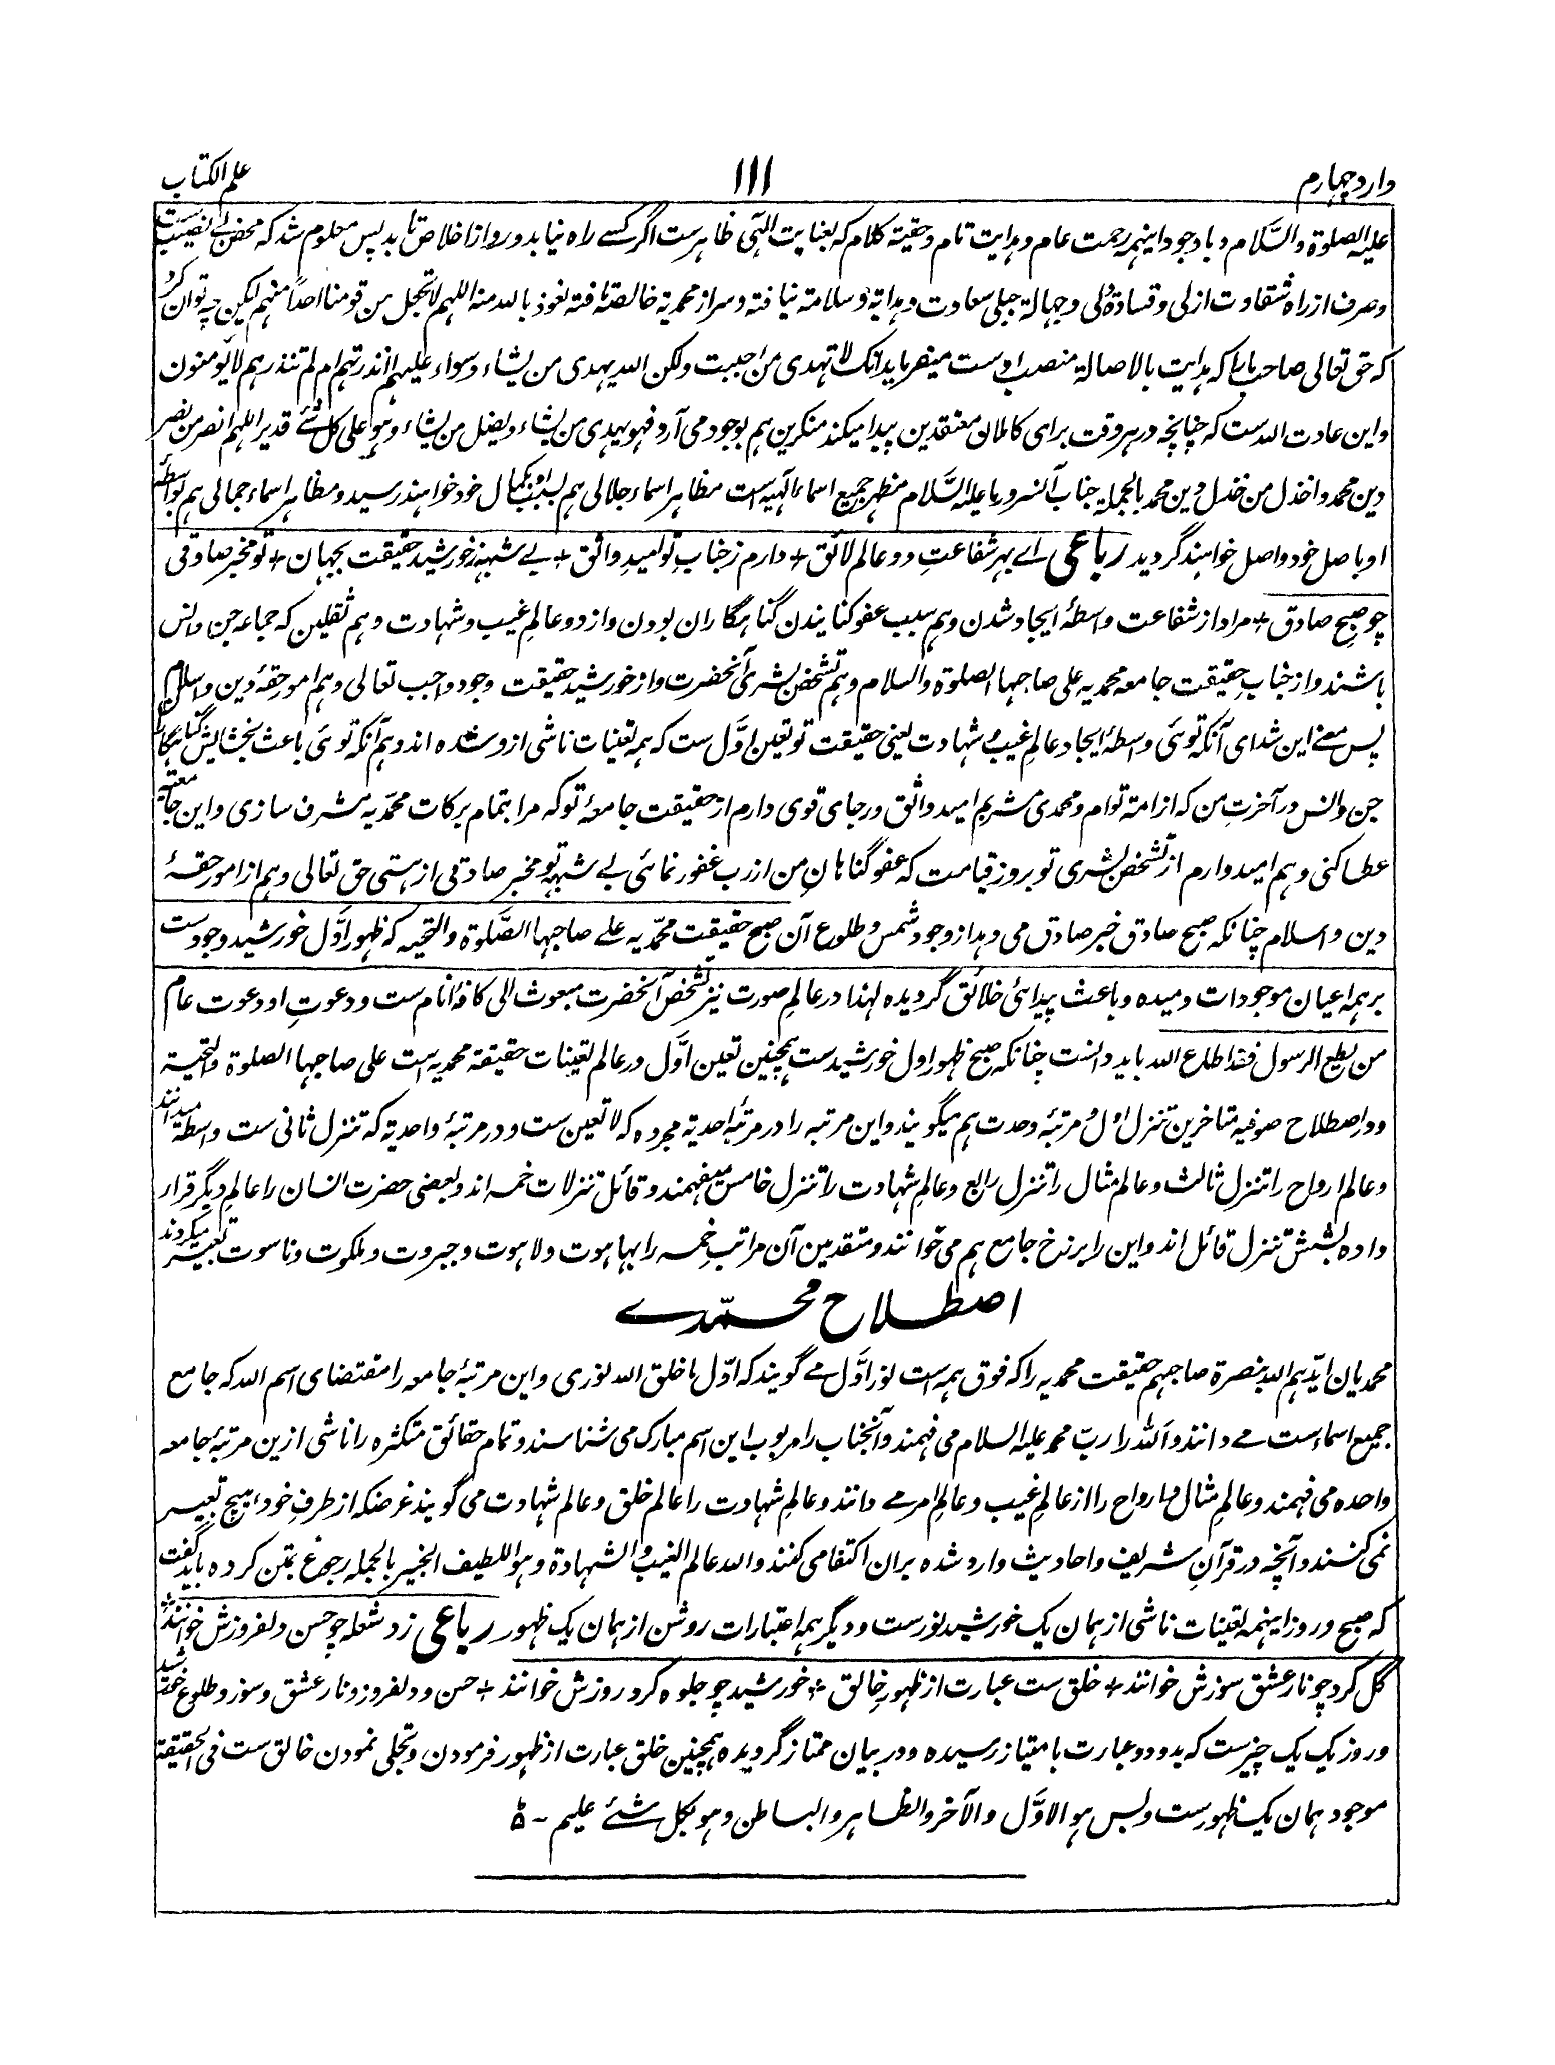 وارد چهارم
۱۱۱
علم الکتاب
علیه الصلوة والسّلام و باوجود اینهمه رحمت عام و هدایت تام و حقیة کلام که بعنایت الٰهی ظاهرست اگر کسے راه نیابد و رو از اخلاص تابد پس معلوم شد که محض بے نصیب ست
و صرف از راه شقاوت ازلی و قساوة دلی و جهالة جبلی سعادت و هدایة و سلامة نیافته و سر از محمدیة خالصة تافته نعوذ بالله منه اللهم لا تجعل من قومنا احداً منهم لیکن چه توان کرد
که حق تعالی صاحب ما را که هدایت بالاصالة منصب اوست میفرماید انک لا تهدی من احببت ولکن الله یهدی من یشاء و سواء علیهم ءانذرتهم ام لم تنذرهم لا یؤمنون
و این عادت الله ست که چنانچه در هر وقت برای کاملان معتقدین پیدا میکند منکرین هم بوجود می آرد فهو یهدی من یشاء و یضل من یشاء و هو علی کل شئے قدیر اللهم انصر من نصر
دین محمد و اخذل من خذل دین محمد بالجملة جناب آنسرور ما علیه السّلام مظهر جمیع اسماء الٰهیه است مظاهر اسماء جلالی هم بسبب او بکمال خود خواهند رسید و مظاهر اسماء جمالی هم بواسطۀ
او باصل خود واصل خواهند گردید رباعی اے بهر شفاعتِ دو عالم لائق + دارم ز جنابِ تو امیدِ واثق + بے شبهه ز خورشید حقیقت بجهان + تو مخبر صادقی
چو صبح صادق + مراد از شفاعت واسطۀ ایجاد شدن و هم سبب عفو کنایندن گناهگاران بودن و از دو عالم غیب و شهادت و هم ثقلین که جماعه جن و انس
باشند و از جناب حقیقت جامعه محمدیه علی صاحبها الصلوة والسلام و هم تشخص بشری آنحضرت و از خورشید حقیقت وجود واجب تعالی و هم امور حقه دین و اسلام
پس معنے این شد ای آنکه توئی واسطۀ ایجاد عالم غیب و شهادت یعنی حقیقت تو تعین اوّل ست که همه تعینات ناشی ازو شده اند و هم آنکه توئی باعث بخشایش گناهگاران
جن و انس در آخرت من که از امة توام و محمدی مشربم امید واثق و رجای قوی دارم از حقیقت جامعۀ تو که مرا بتمام برکات محمّدیه مشرف سازی و این جامعیة
عطا کنی و هم امیدوارم از تشخص بشری تو بروز قیامت که عفو گناهانِ من از رب غفور نمائی بے شبهه تو مخبر صادقی از هستی حق تعالی و هم از امور حقۀ
دین و اسلام چنانکه صبح صادق خبر صادق می دهد از وجود شمس و طلوع آن صبح حقیقت محمّدیه علے صاحبها الصّلوة والتحیه که ظهور اوّل خورشید وجود ست
بر همه اعیان موجودات دمیده و باعث پیدائی خلائق گردیده لهذا در عالم صورت نیز تشخص آنحضرت مبعوث الی کافۀ انام ست و دعوتِ او دعوت عام
من یطع الرسول فقد اطاع الله باید دانست چنانکه صبح ظهور اول خورشید ست همچنین تعین اوّل در عالم تعینات حقیقة محمدیه است علی صاحبها الصلوة والتحیة
و در اصطلاح صوفیه متاخرین تنزل اول و مرتبۀ وحدت هم میگویند و این مرتبه را در مرتبۀ احدیة مجرده که لا تعین ست و در مرتبۀ واحدیة که تنزل ثانی ست واسطه میدانند
و عالم ارواح را تنزل ثالث و عالم مثال را تنزل رابع و عالم شهادت را تنزل خامس میفهمند و قائل تنزلات خمسه اند و بعضی حضرت انسان را عالم دیگر قرار
داده بشش تنزل قائل اند و این را برزخ جامع هم می خوانند و متقدمین آن مراتب خمسه را بهاهوت و لاهوت و جبروت و ملکوت و ناسوت تعبیر میکردند
اصطلاح محمّدے
محمدیان ایدهم الله بنصرة صاحبهم حقیقت محمدیه را که فوق همه است نور اوّل مے گویند که اوّل ما خلق الله نوری و این مرتبۀ جامعه را مقتضای اسم الله که جامع
جمیع اسماء ست مے دانند و الله را ربّ محمد علیه السلام می فهمند و آنجناب را مربوب این اسم مبارک می شناسند و تمام حقائق متکثره را ناشی ازین مرتبۀ جامعه
واحده می فهمند و عالم مثال و ارواح را از عالمِ غیب و عالمِ امر مے دانند و عالمِ شهادت را عالم خلق و عالم شهادت می گویند غرضکه از طرفِ خود هیچ تعبیر
نمی کنند و آنچه در قرآنِ شریف و احادیث وارد شده بر ان اکتفا می کنند والله عالم الغیب والشهادة و هو اللطیف الخبیر بالجمله رجوع بمتن کرده باید گفت
که صبح و روز اینهمه تعینات ناشی از همان یک خورشید نور ست و دیگر همه اعتبارات روشن از همان یک ظهور رباعی زد شعله چو حسن دلفروزش خوانند
گل کرد چو نار عشق سوزش خوانند + خلق ست عبارت از ظهورِ خالق + خورشید چو جلوه کرد روزش خوانند + حسن و دلفروز و نار عشق و سوز و طلوع خورشید
و روز یک یک چیزست که بدو دو عبارت بامتیاز رسیده و در بیان ممتاز گردیده همچنین خلق عبارت از ظهور فرمودن و تجلی نمودن خالق ست فی الحقیقة
موجود همان یک ظهورست و بس هو الاوّل والآخر والظاهر والباطن و هو بکل شئے علیم -